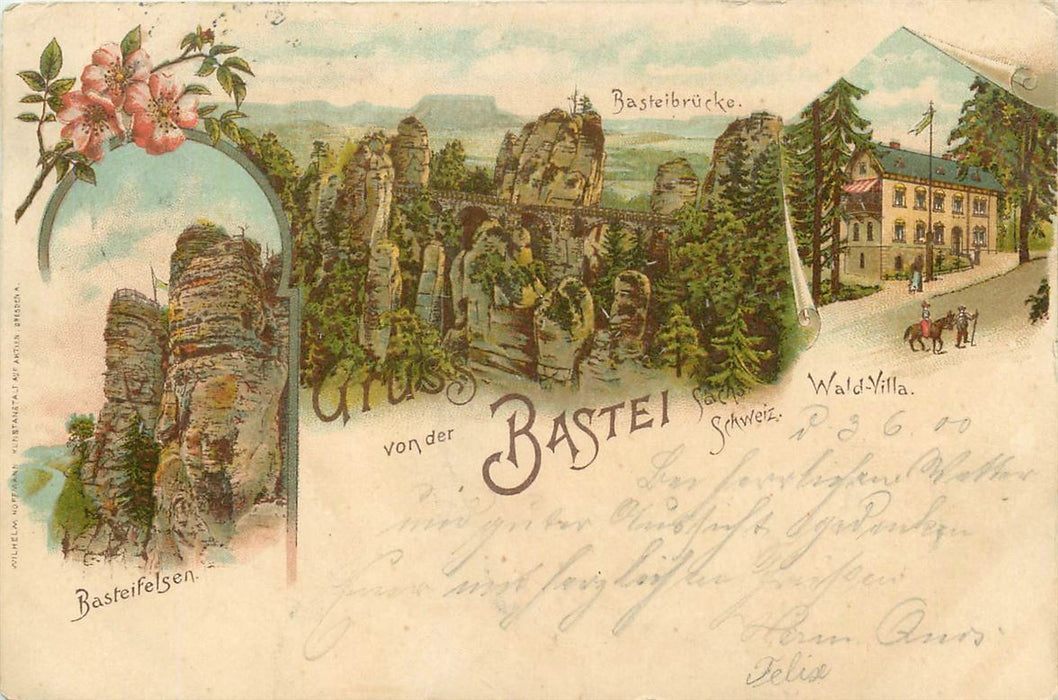 Basteibrücke.
Gruss
von der
BASTEI
Sächs.
Schweiz.
Wald-Villa.
Basteifelsen.
WILHELM HOFFMANN KUNSTANSTALT AUF AKTIEN · DRESDEN A.
d. 3 6. 00
Bei herrlichem Wetter
und guter Aussicht gedenken
Euer mit herzlichen Grüßen
Herm.
Felix